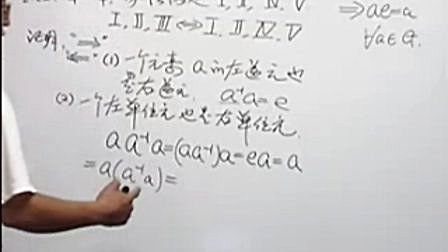 I, II, IV, V
I, II, III ⟺ I, II, IV, V
证明, "⟹"
"⟸" (1) 一个元素 a 的左逆元也
是右逆元. a⁻¹a=e
(2) 一个左单位元也是右单位元.
a a⁻¹a=(aa⁻¹)a=ea=a
=a(a⁻¹a)=
⟹ ae=a
∀a∈G.